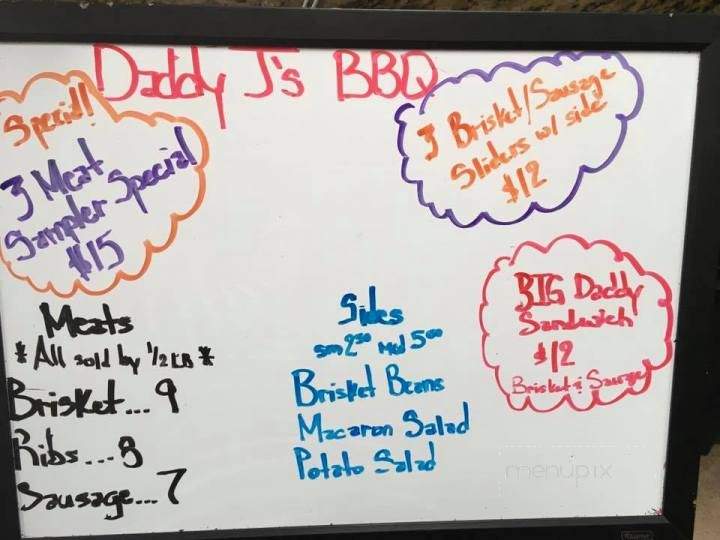 Daddy J's BBQ
Special!
3 Meat
Sampler Special
$15
3 Brisket/Sausage
Sliders w/ side
$12
BIG Daddy
Sandwich
$12
Brisket & Sausage
Meats
* All sold by 1/2 LB *
Brisket... 9
Ribs... 8
Sausage... 7
Sides
sm 2⁵⁰ Med 5⁰⁰
Brisket Beans
Macaron Salad
Potato Salad
menupix